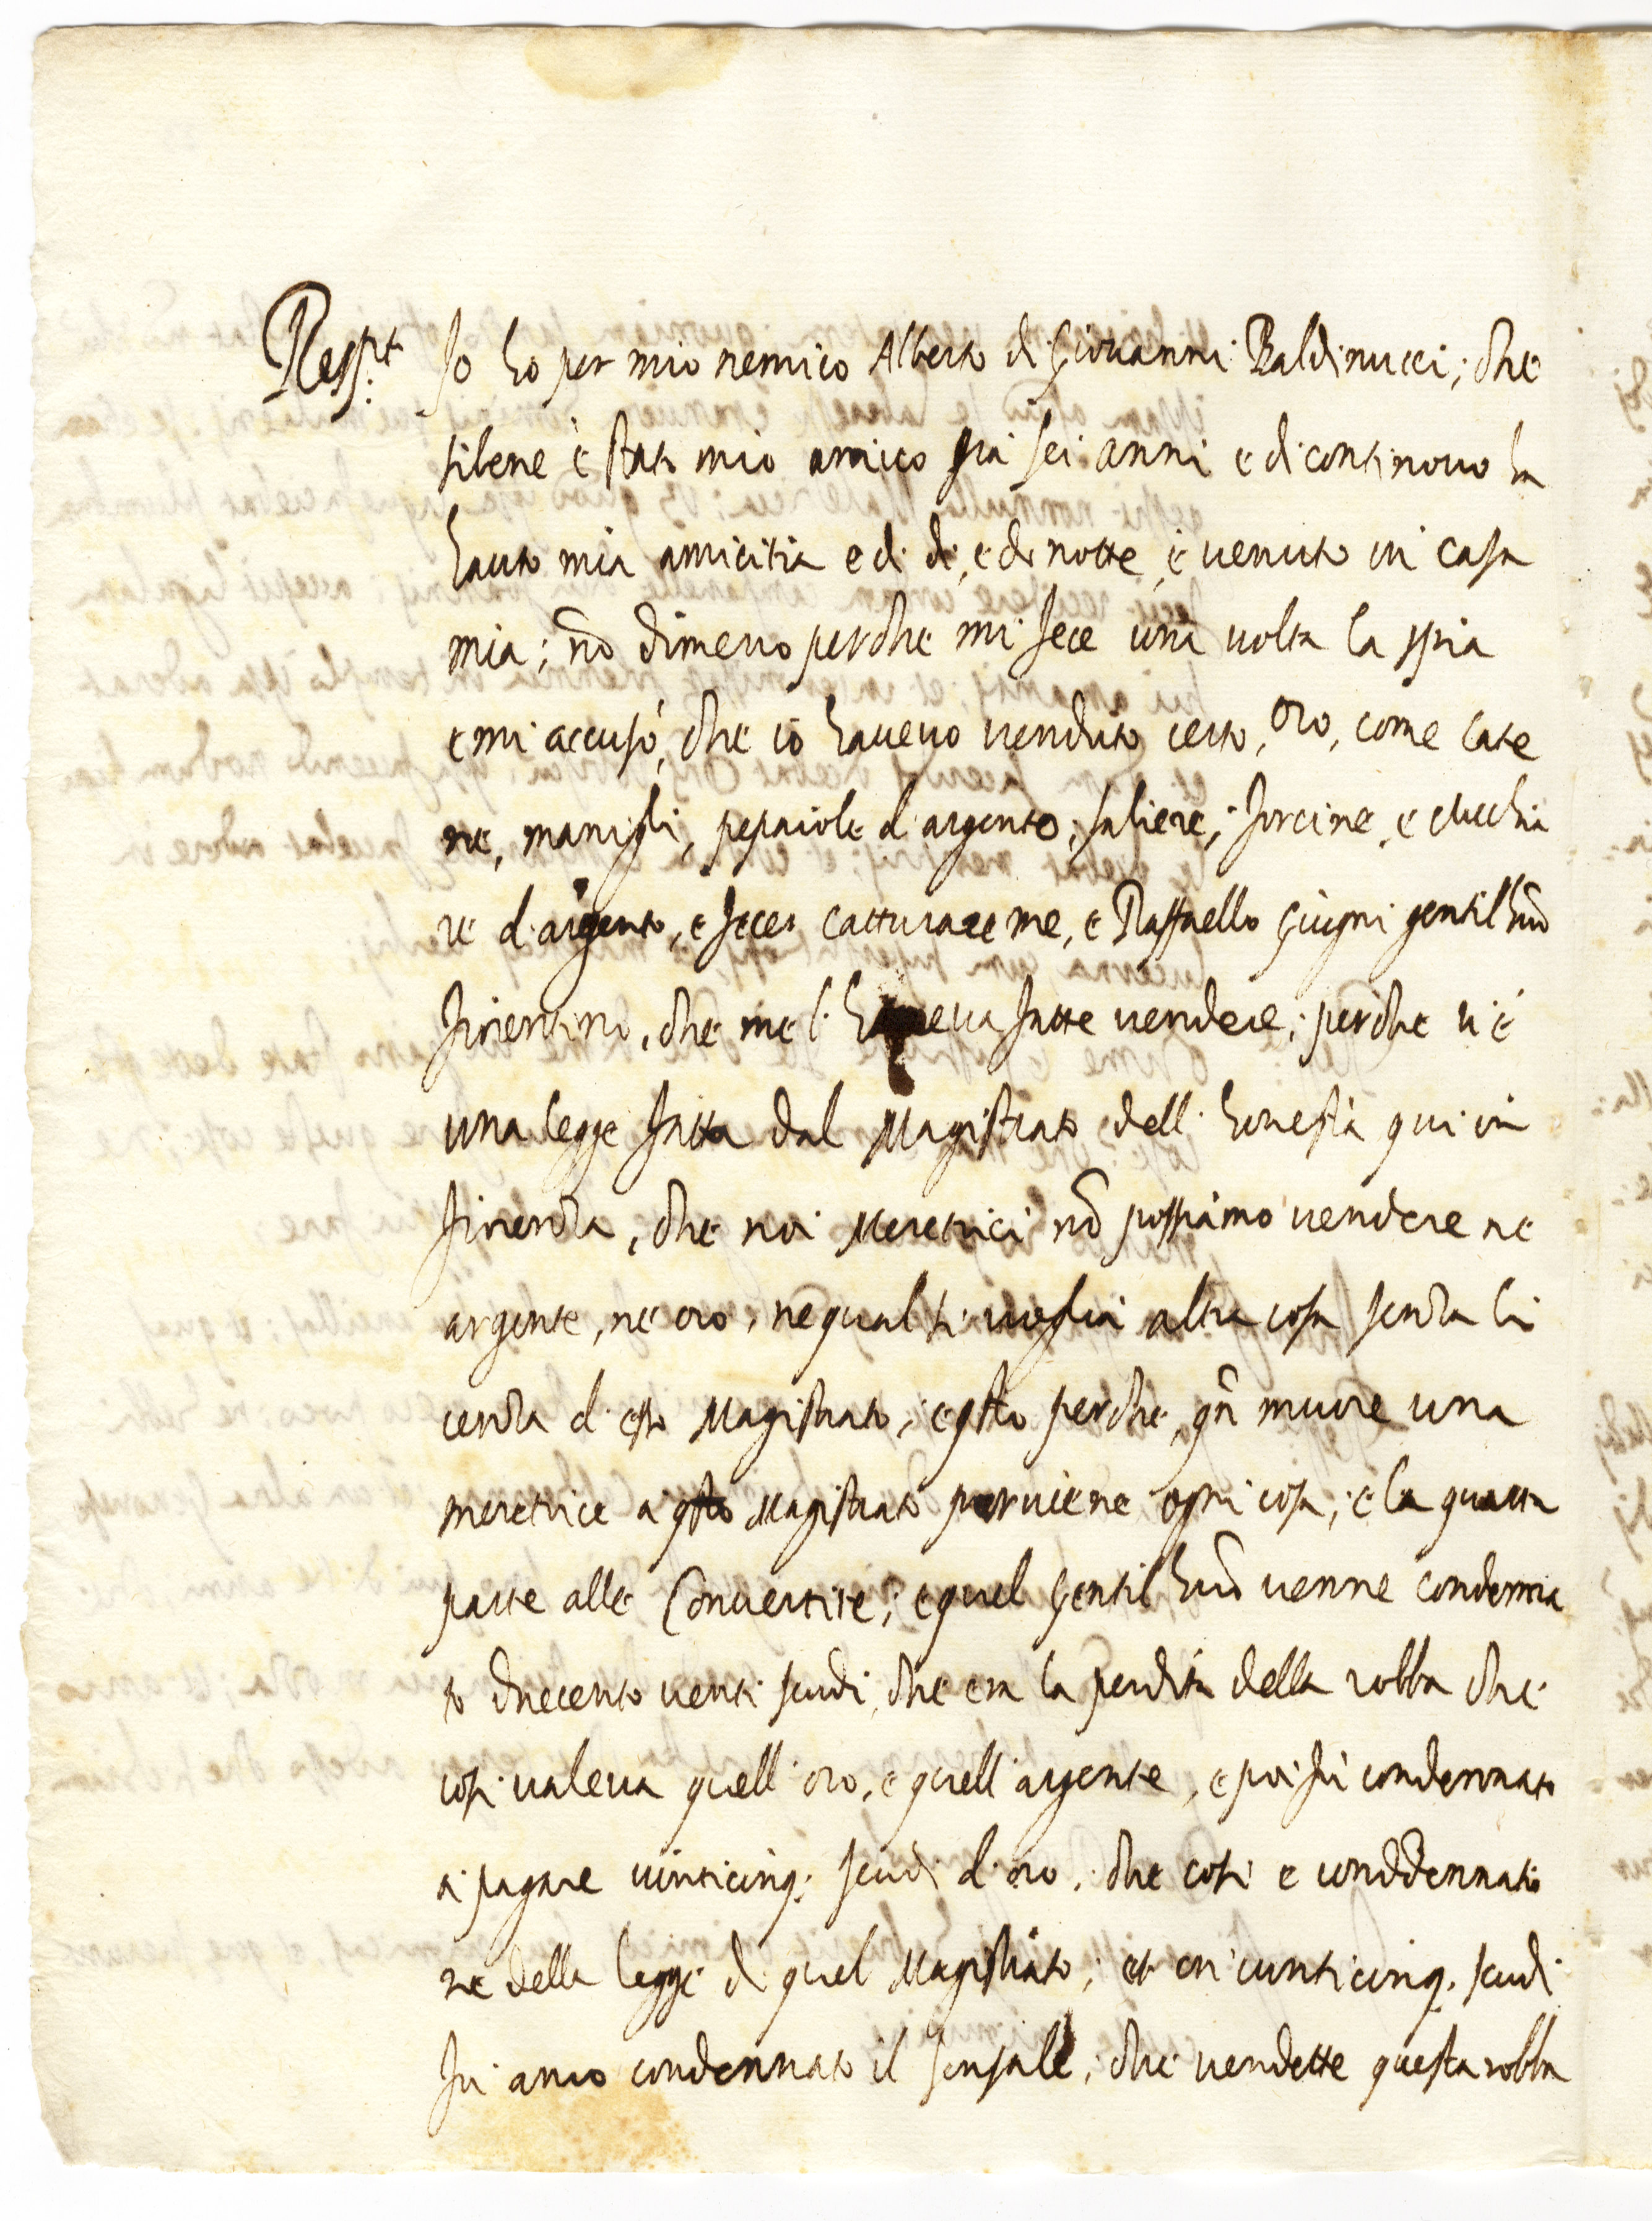 Resp.t Io ho per mio nemico Alberto di Giovanni Baldinucci; che
sibene è stato mio amico già sei anni e di continouo ha
hauto mia amicitia e di dì, e di notte è uenuto in casa
mia; nō dimeno perche mi fece una uolta la spia
e mi accusò, che io haueuo uenduto certo, oro, come cate
ne, manigli, pepaiole d'argento, saliere, forcine, e cucchia
re d'argento, e fece catturare me, e Raffaello Giugni gentil'huō
fiorentino, che me l' haueua fatte uendere; perche u'è
una legge fatta dal Magistrato dell' honestà qui in
fiorenza, che noi Meretrici nō possiamo uendere ne
argente, ne oro, ne qual si uoglia altra cosa senza li
cenza d' esso Magistrato, e qsto perche qn muore una
meretrice à qsto Magistrato peruiene ogni cosa, e la quarta
parte alle Conuertite; e quel gentil huō uenne condenna
to duecento uenti scudi, che era la perdita della robba che
cosi ualeua quell' oro, e quell' argente, e poi fù condennato
à pagare uinticinq; scudi d' oro, che cosi e conddennatio
ne della legge di quel Magistrato; et in uinticinq. scudi
fu anco condennato il sensale, che uendette questa robba